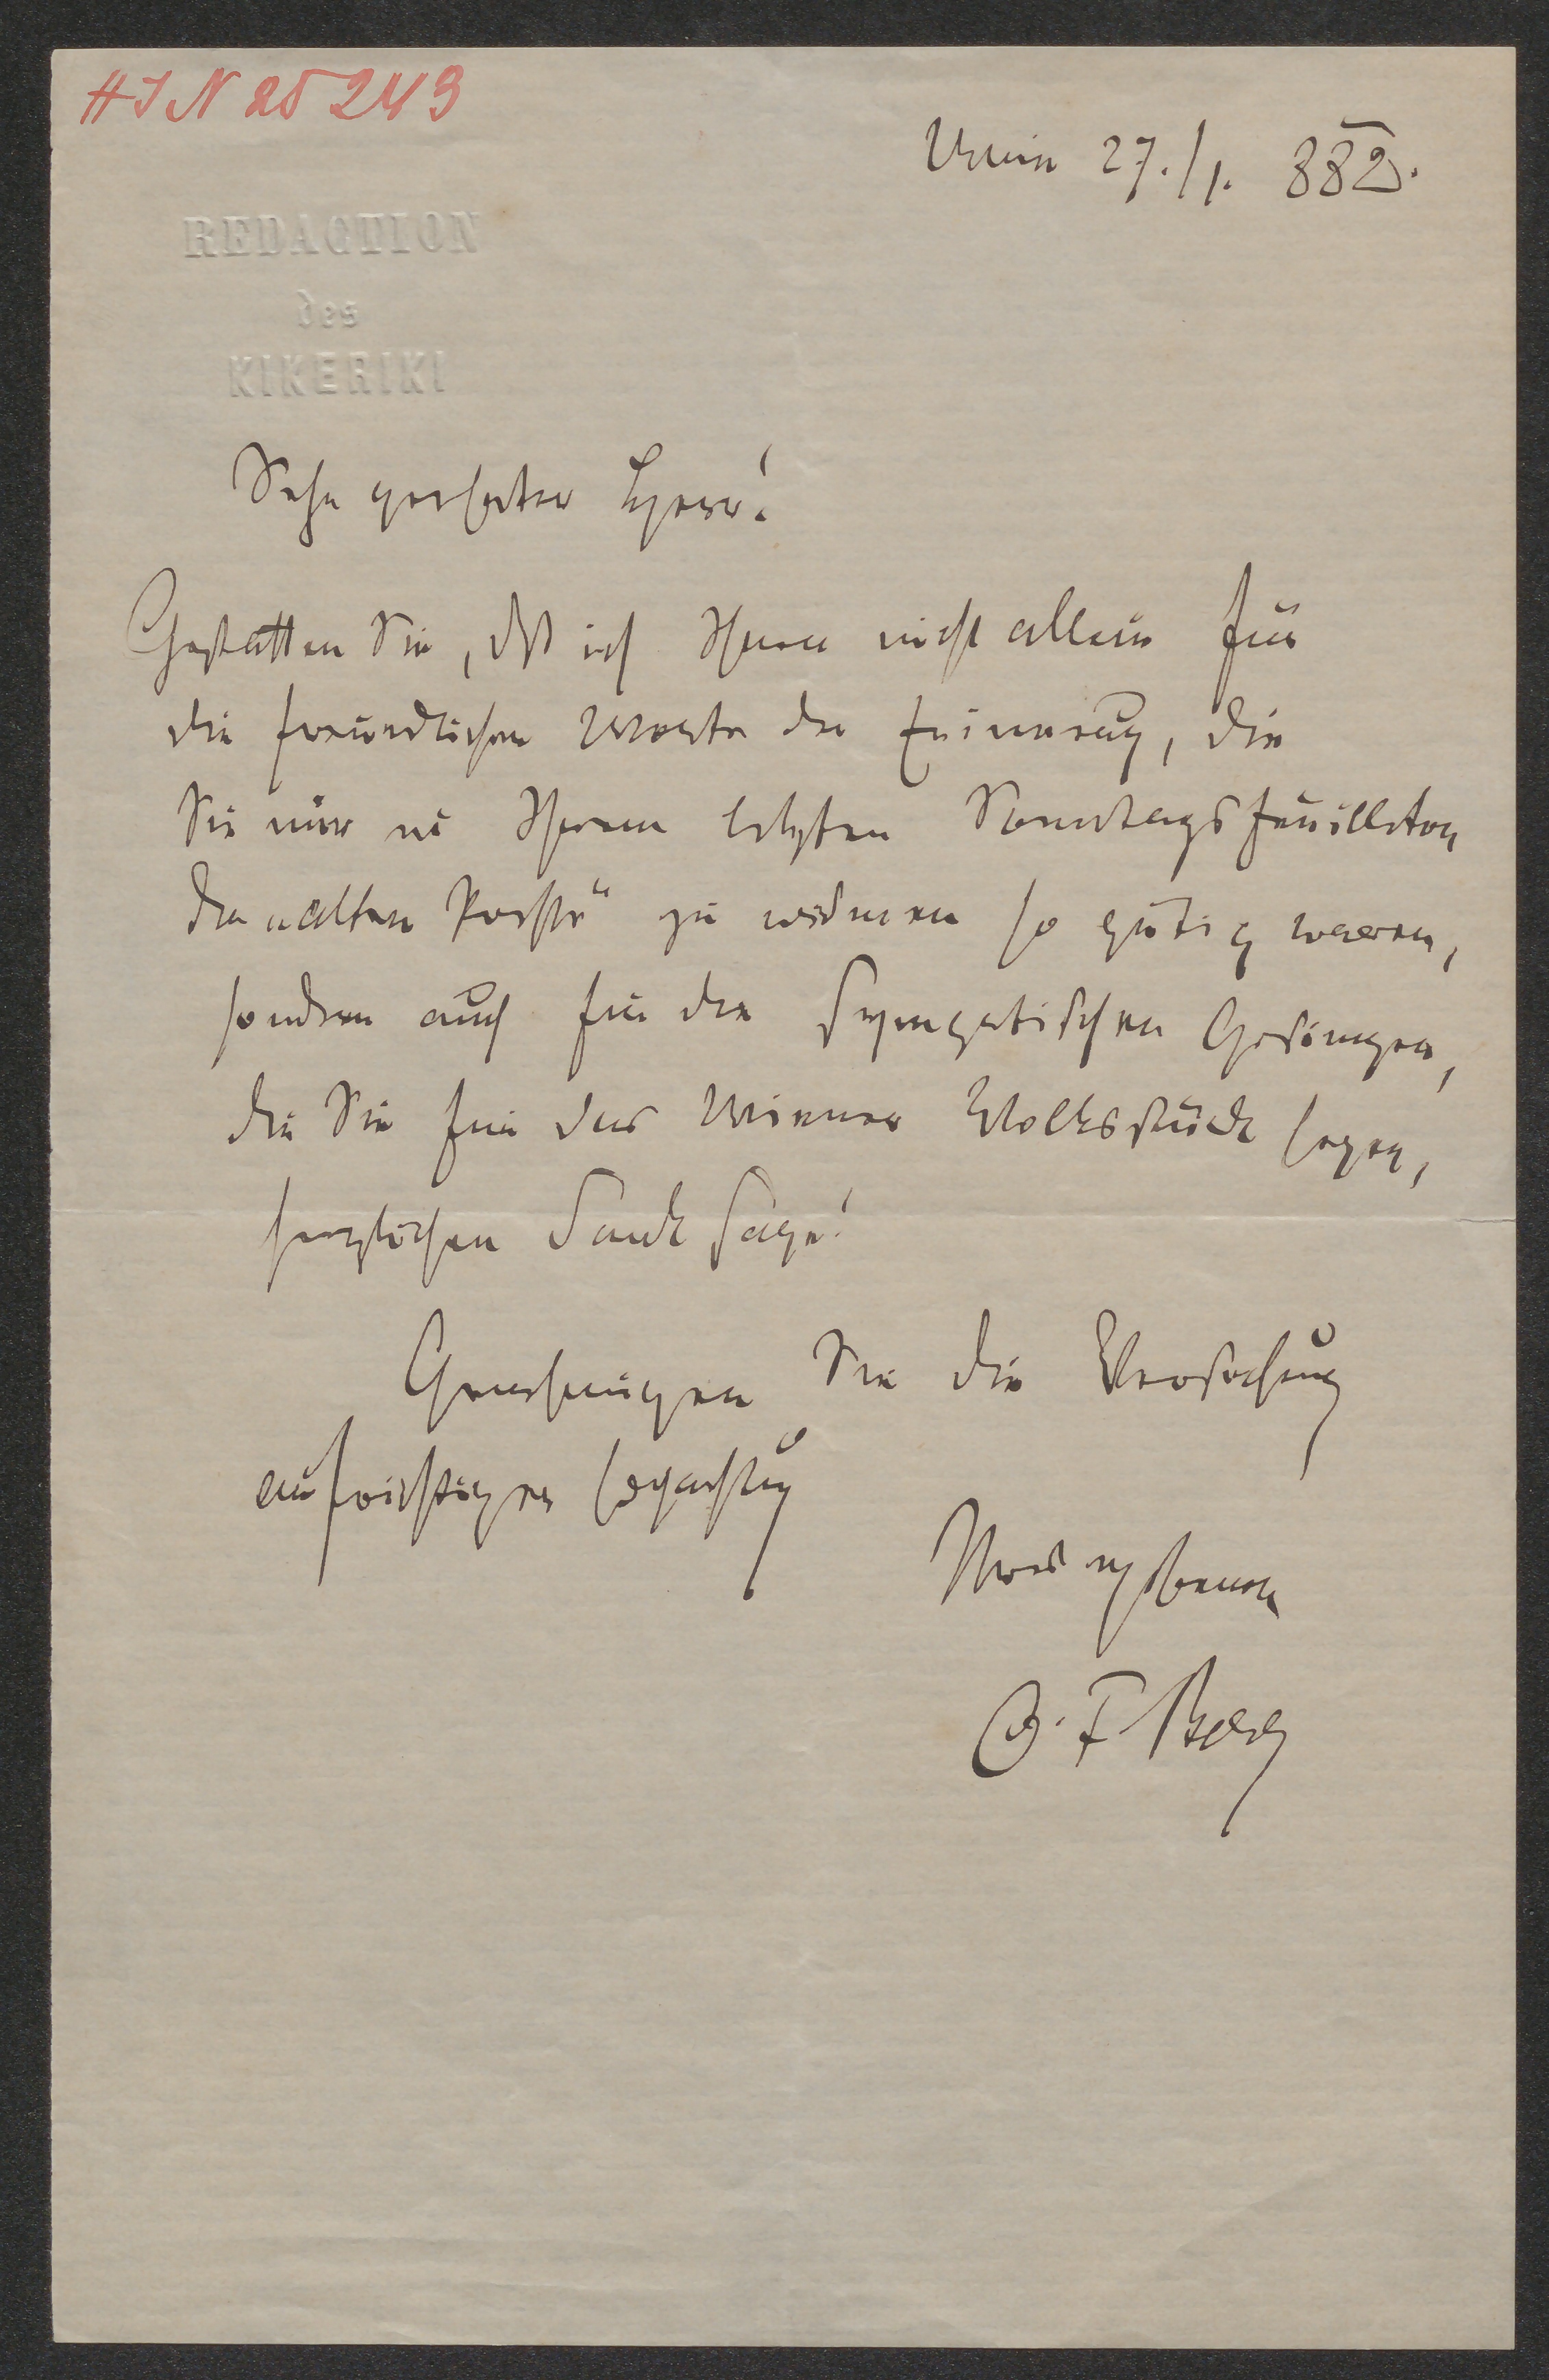 HIN 25249
Wien 27./1. 882.
REDACTION
des
KIKERIKI
Sehr geehrter Herr!
Gestatten Sie, dß ich Ihnen nicht allein für
die freundlichen Worte der Erinnerung, die
Sie mir in Ihrem letzten Sonntagsfeuilleton
der „alten Presse" zu widmen so gütig waren,
sondern auch für die sympatischen Gesinngen,
die Sie für das Wiener Volksstück hegen,
herzlichen Dank sage!
Genehmigen Sie die Versicherung
aufrichtiger Hochachtung
Ihres ergebenen
O. F. Berg